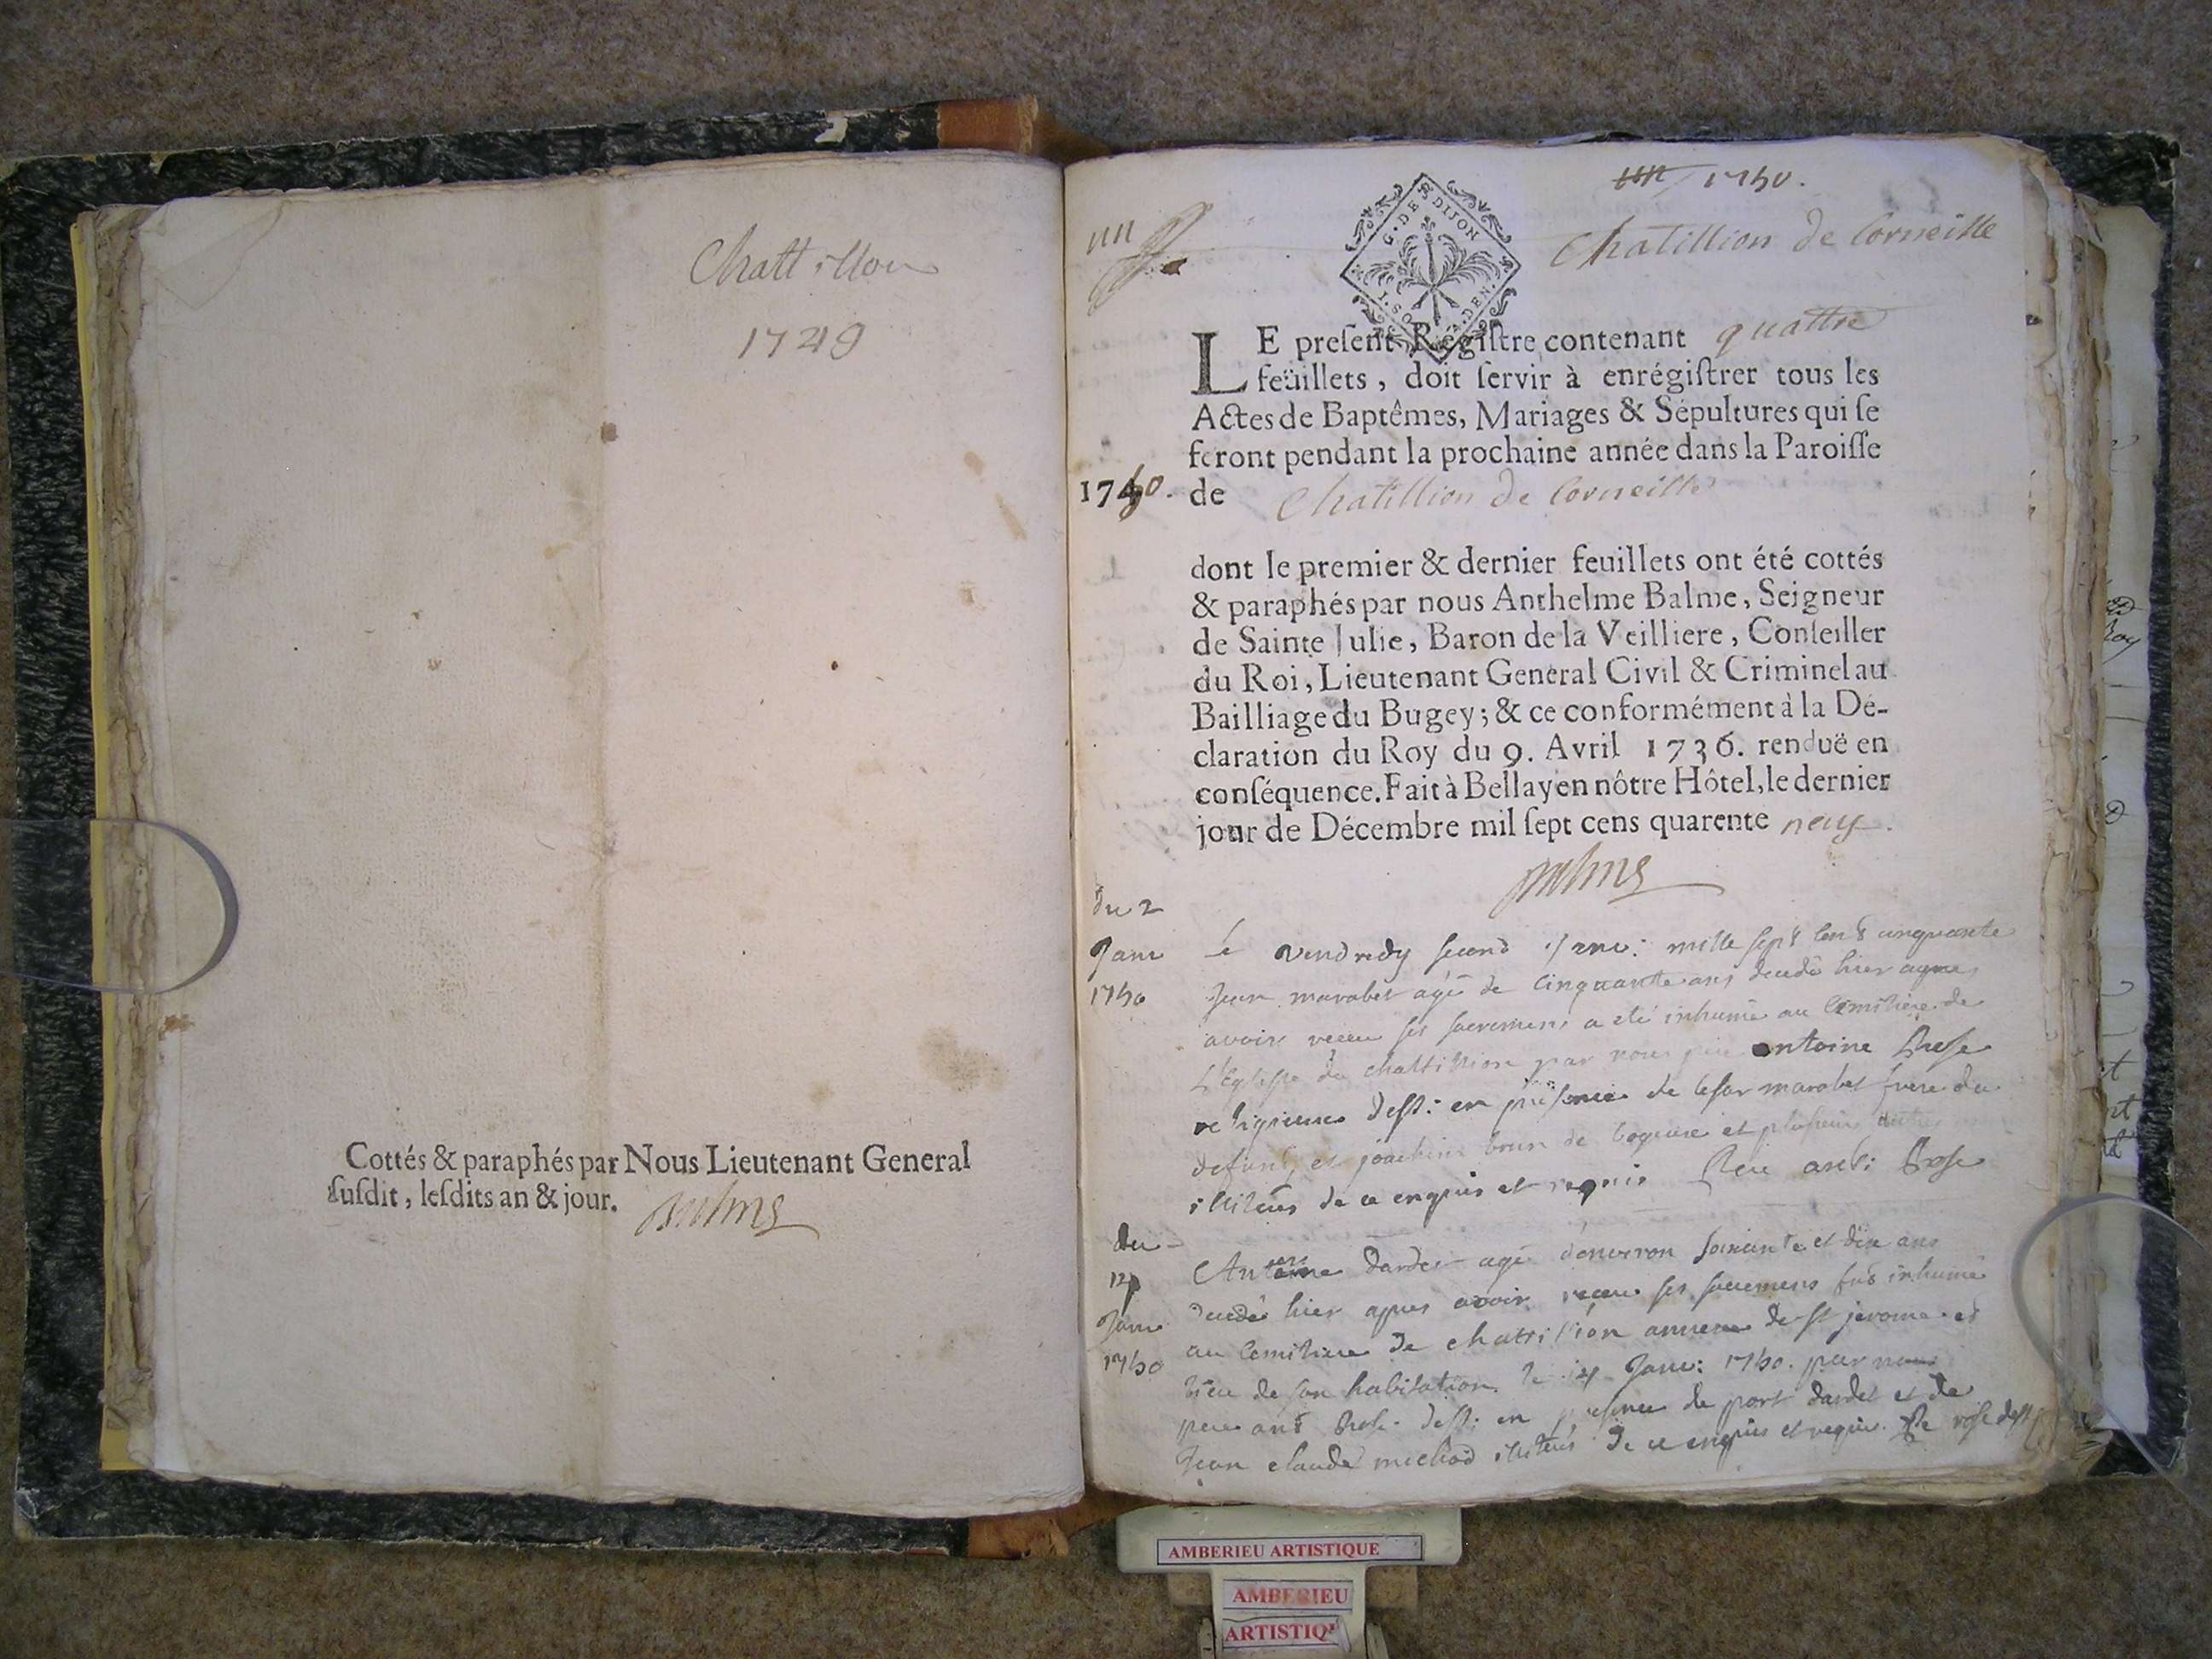 Chattillon
1749
Cottés & paraphés par Nous Lieutenant General
susdit, lesdits an & jour.
1750.
Chatillion de Corneille
G. DE DIJON
LE present Régistre contenant quattre
feüillets, doit servir à enrégistrer tous les
Actes de Baptêmes, Mariages & Sépultures qui se
feront pendant la prochaine année dans la Paroisse
1750. de Chatillion de Corneille
dont le premier & dernier feuillets ont été cottés
& paraphés par nous Anthelme Balme, Seigneur
de Sainte Julie, Baron de la Veilliere, Conseiller
du Roi, Lieutenant General Civil & Criminel au
Bailliage du Bugey; & ce conformément à la De-
claration du Roy du 9. Avril 1736. renduë en
conséquence. Fait à Bellay en nôtre Hôtel, le dernier
jour de Décembre mil sept cens quarente neuf.
Balme
du 2
Janv
1750
le vendredy second Janv: mille sept cent cinquante
Jean marabet agé de cinquante ans decedé hier apres
avoir receu ses sacremens a eté inhumé au cimitiere de
L'Eglise de chattillion par nous antoine Rose
religieux en présence de cesar marabet frere du
defunt, et joachim brun de et plusieurs autres
illiterés de ce enquis et requis Rose
du
Janv
1750
Antoine dardet agé d'environ soixante et dix ans
decedé hier apres avoir receu ses sacremens fut inhumé
au cemitiere de chattillion annexe de st jerome et
lieu de son habitation le 14 Janv: 1750. par nous
pere ant Rose en presence de dardet et de
Jean claude michod illiterés de ce enquis et requis. Rose
AMBERIEU ARTISTIQUE
AMBERIEU
ARTISTIQ